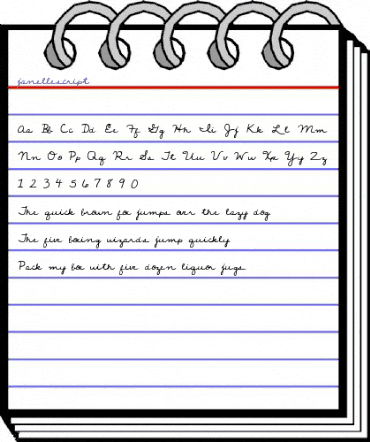 janellescript
Aa Bb Cc Dd Ee Ff Gg Hh Ii Jj Kk Ll Mm
Nn Oo Pp Qq Rr Ss Tt Uu Vv Ww Xx Yy Zz
1 2 3 4 5 6 7 8 9 0
The quick brown fox jumps over the lazy dog
The five boxing wizards jump quickly
Pack my box with five dozen liquor jugs